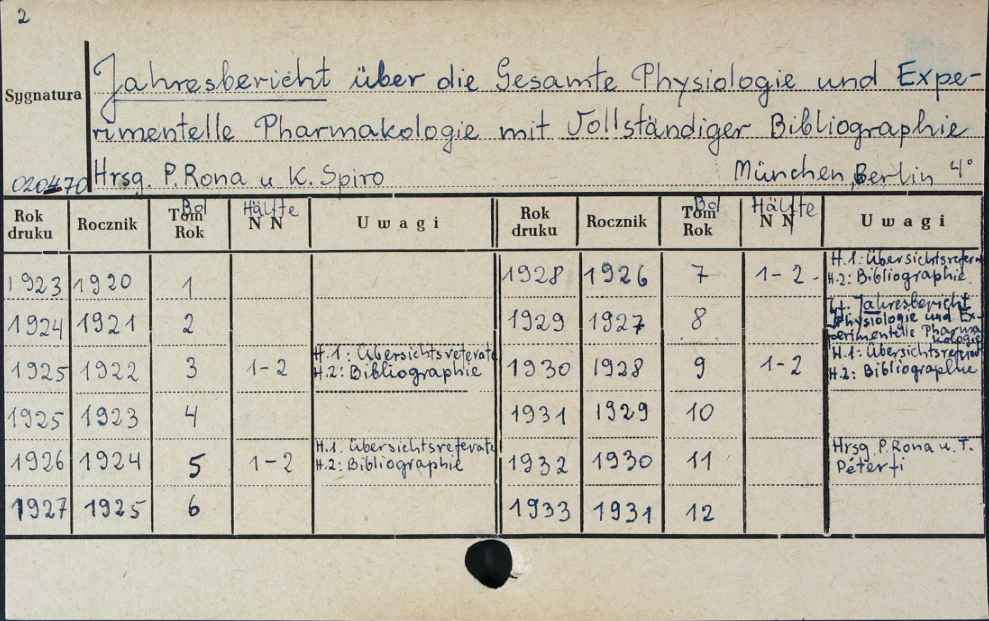 2
Jahresbericht über die Gesamte Physiologie und Expe-
Sygnatura
rimentelle Pharmakologie mit Vollständiger Bibliographie
020470 Hrsg. P. Rona u K. Spiro München, Berlin 4°
Rok druku Rocznik Bd Tom Rok Hälfte N N Uwagi Rok druku Rocznik Bd Tom Rok Hälfte N N Uwagi
1923 1920 1
1924 1921 2
1925 1922 3 1-2 H.1: Übersichtsreferate
H.2: Bibliographie
1925 1923 4
1926 1924 5 1-2 H.1. Übersichtsreferate
H.2: Bibliographie
1927 1925 6
1928 1926 7 1-2 H.1: Übersichtsreferate
H.2: Bibliographie
1929 1927 8 Jahresbericht
Physiologie und Ex-
perimentelle Pharma
kologie
1930 1928 9 1-2 H.1: Übersichtsreferat
H.2: Bibliographie
1931 1929 10
1932 1930 11 Hrsg P. Rona u. T.
Péterfi
1933 1931 12